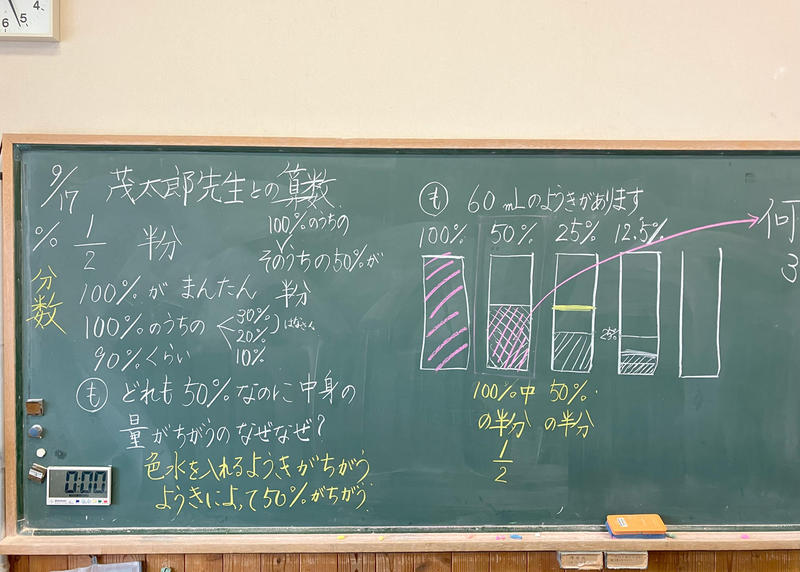 4
5
6
9/17 茂太郎先生との算数
% 1/2 半分
分数
100%のうちの
そのうちの50%が
半分
100%が まんたん
100%のうちの
30%
20%
10%
90%くらい
も どれも50%なのに中身の
量がちがうのなぜなぜ?
色水を入れるようきがちがう
ようきによって50%がちがう
0:00
も 60mLのようきがあります
100% 50% 25% 12.5%
25%
100%中の半分
1/2
50%の半分
何
3